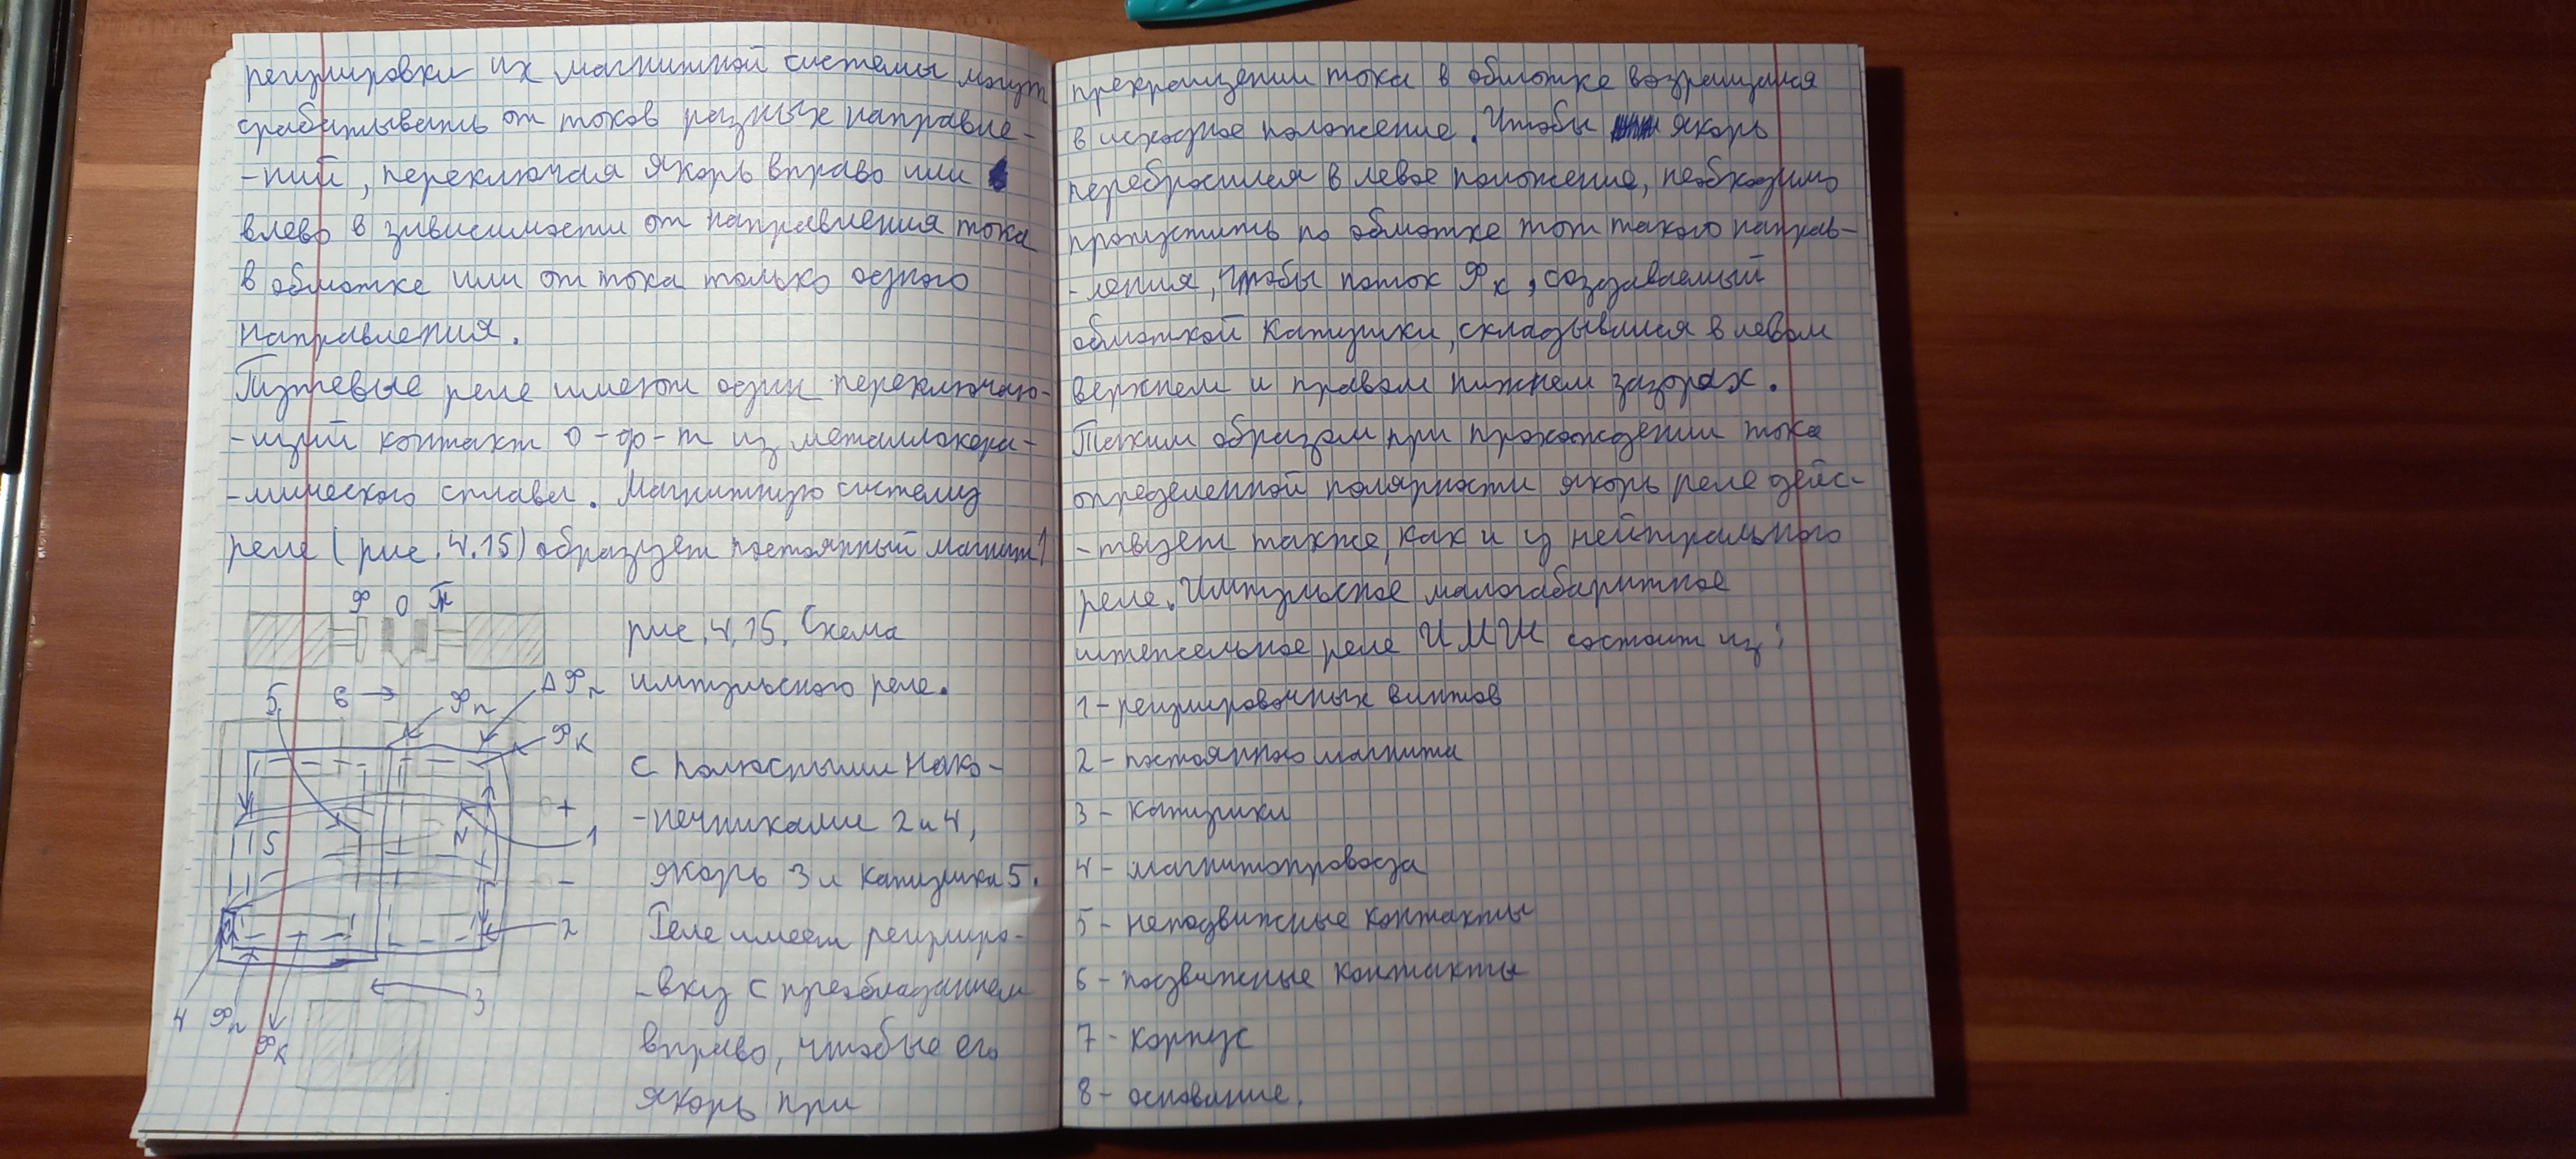 регулировки их магнитной системы могут
срабатывать от токов разных направле-
-ний, переключая якорь вправо или
влево в зависимости от направления тока
в обмотке или от тока только одного
направления.
Путевые реле имеют один переключаю-
-щий контакт о-ф-т из металлокера-
-мического сплава. Магнитную систему
реле (рис. 4.15) образует постоянный магнит 1
Ф О П
рис. 4.15. Схема
импульсного реле.
5 6 → Фп ΔФп
Фк
с полюсными нако-
-нечниками 2 и 4,
якорь 3 и катушка 5.
Реле имеет регулиро-
-вку с преобладанием
вправо, чтобые его
якорь при
+
S N 1
-
2
3
4 Фп
Фк
прекращении тока в обмотке возращался
в исходное положение. Чтобы якорь
перебросился в левое положение, необходимо
пропустить по обмотке тот такого направ-
-ления, чтобы поток Фк, создаваемый
обмоткой катушки, складывался в левом
верхнем и правом нижнем зазорах.
Таким образом при прохождении тока
определенной полярности якорь реле дейс-
-твует также, как и у нейтрального
реле. Импульсное малогабаритное
штепсельное реле ИМШ состоит из:
1 - регулировочных винтов
2 - постоянного магнита
3 - катушки
4 - магнитопровода
5 - неподвижные контакты
6 - подвижные контакты
7 - корпус
8 - основание.